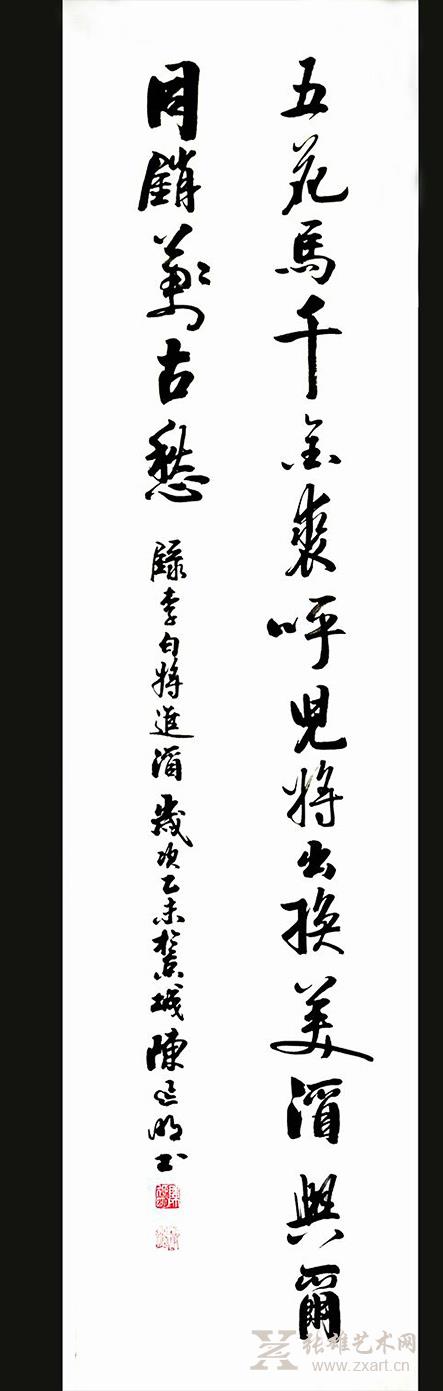 五花馬千金裘呼兒將出換美酒與爾
同銷萬古愁 錄李白將進酒 歲次乙未於城陳明書
张雄艺术网
www.zxart.cn